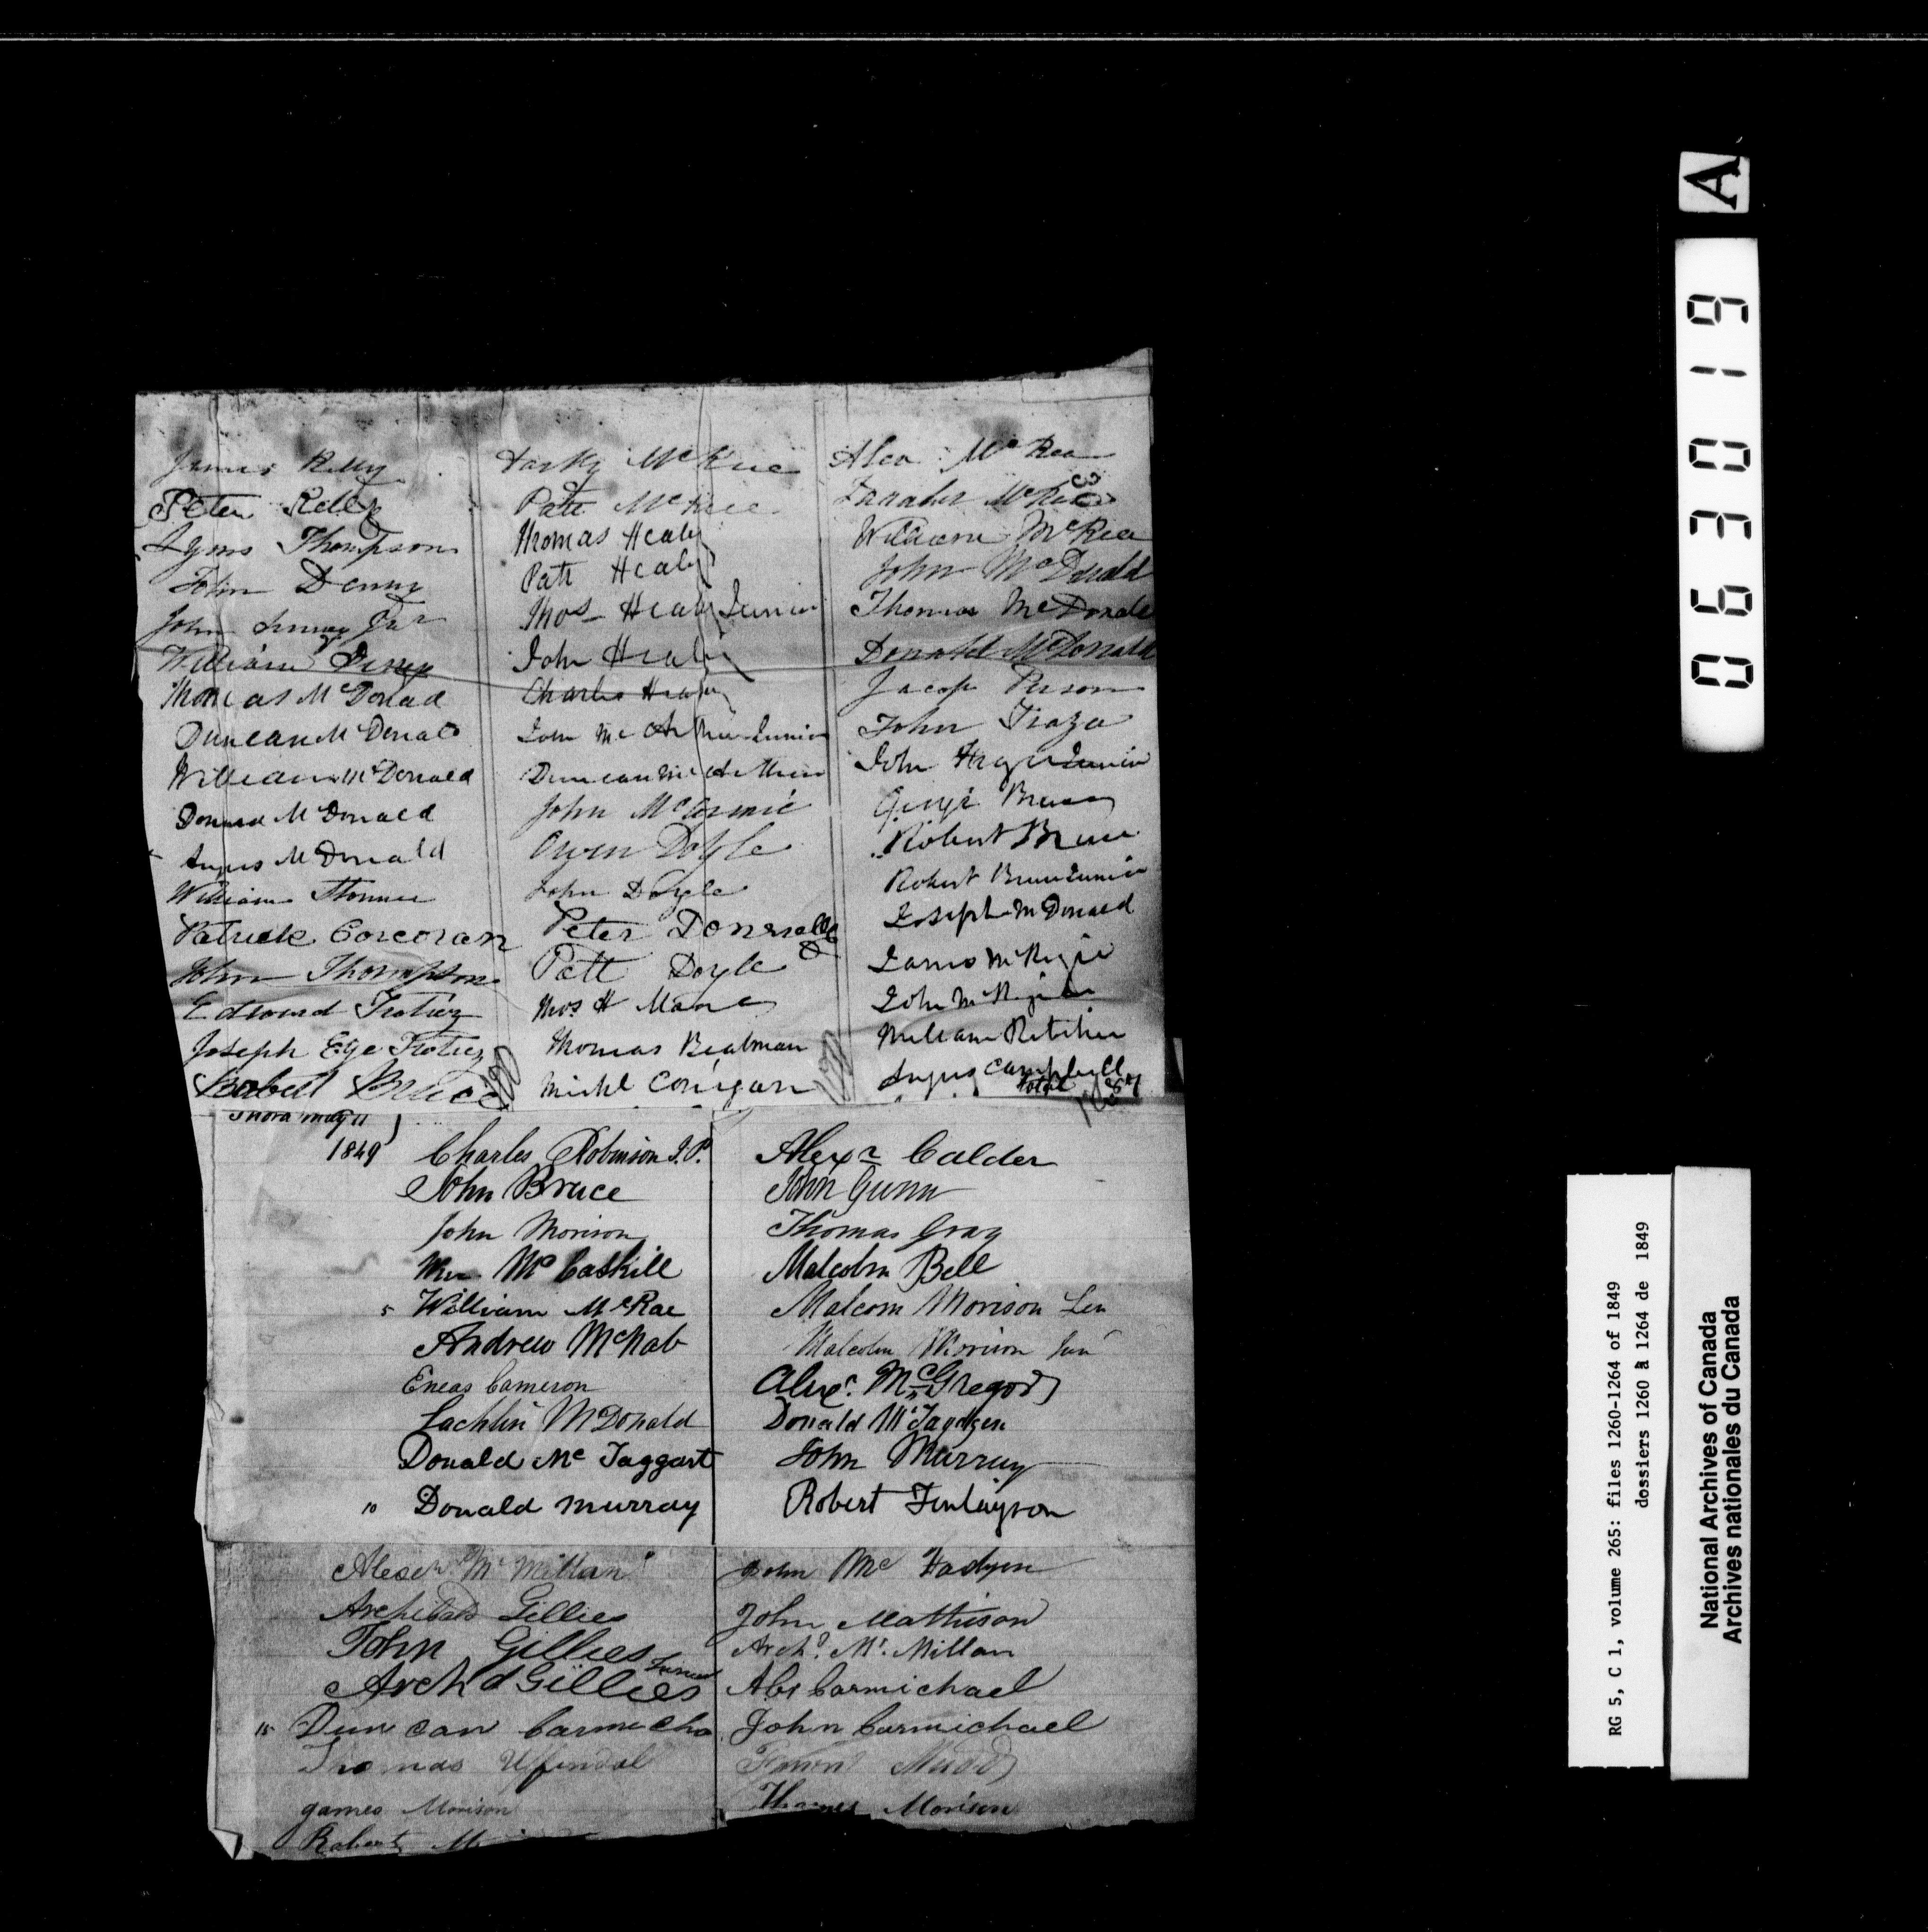 James Relly
Peter Relly
Thompson
John Denny
John Junr
William Denny
Thomas McDonad
Duncan McDonald
William McDonald
Donald McDonald
Angus McDonald
William
Patrick Corcoran
John Thompson
Edward Trotier
Joseph Trotier
Robert Bruce
McKee
Patt McKee
Thomas Healy
Patt Healy
Thos Healy Junior
John Healy
Charles Healy
John McArthur Junior
Duncan McArthur
John McCormic
Owen Doyle
John Doyle
Peter Donnally
Patt Doyle
Thos H
Thomas Bealman
Michl Corrigan
Alex McRea
McRea
30
William McRea
John McDonald
Thomas McDonald
Donald McDonald
Jacop
John
John Junior
George Bruce
Robert Bruce
Robert Bruce Junior
Joseph McDonald
James
John
William Ritchie
Angus Campbell
total
Thora May 11
1849
Charles Robinson J.P.
John Bruce
John Morison
Wm McCaskill
5 William McRae
Andrew McNab
Eneas Cameron
Lachlin McDonald
Donald Mc Taggart
10 Donald Murray
Alexr Calder
John Gunn
Thomas Gray
Malcolm Bell
Malcom Morison Sen
Malcolm Morison Jun
Alexr. McGregor
Donald
John Murray
Robert Finlayson
Alexr McMillan
Archibald Gillies
John Gillies
Junior
Archd Gillies
15 Duncan Carmicha
Thomas Uffendal
James Morison
Robert M
John Mc Fadyen
John Mathison
Archd. McMillan
Carmichael
John Carmichael
Mudd
Thomas Morison
A
063019
RG 5, C 1, volume 265: files 1260-1264 of 1849
dossiers 1260 à 1264 de 1849
National Archives of Canada
Archives nationales du Canada